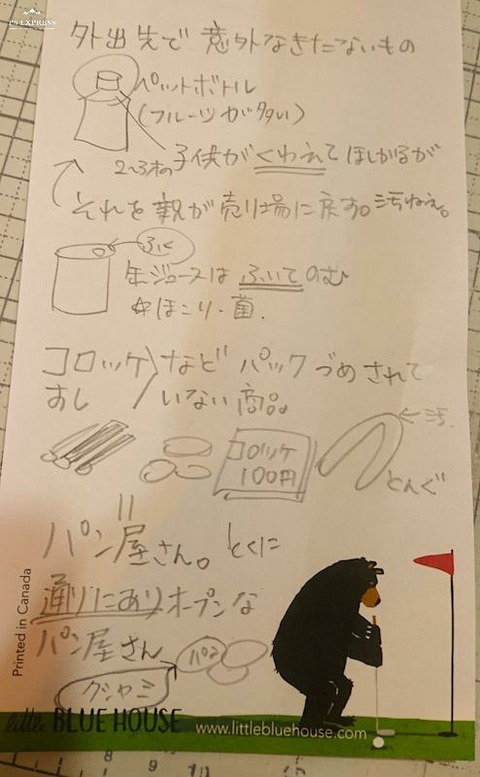 PS EXPRESS
外出先で 意外なきたないもの
ペットボトル
(フルーツが多い)
2~3才の子供がくわえてほしがるが
それを親が売り場に戻す。汚ねえ。
ふく
缶ジュースは ふいてのむ
ほこり・菌.
コロッケ
すし
など パックづめされて
いない商品。
コロッケ
100円
←汚.
とんぐ
パン屋さん。とくに
通りにありオープンな
パン屋さん
パン
クシャミ
Printed in Canada
little BLUE HOUSE www.littlebluehouse.com
8 9 10